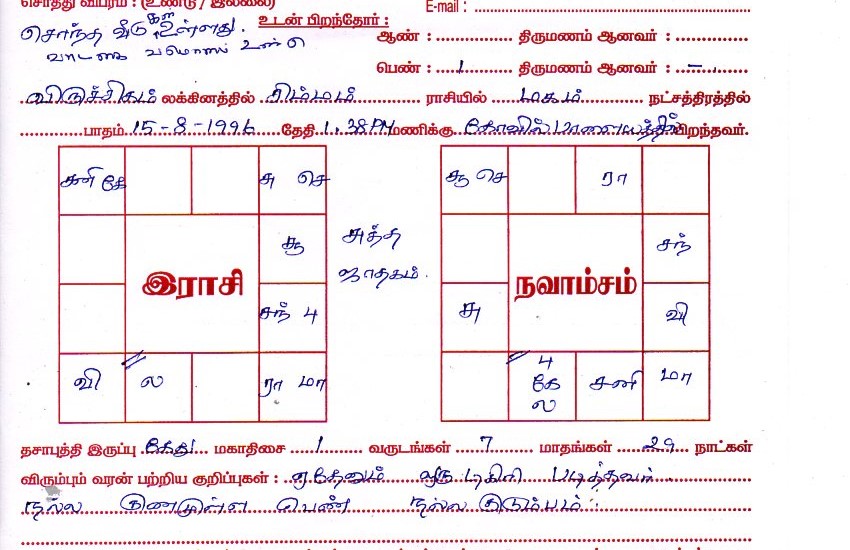 சொத்து விபரம் : (உண்டு / இல்லை)
E-mail :
சொந்த வீடுகள் உள்ளது.
உடன் பிறந்தோர் :
ஆண் : திருமணம் ஆனவர் :
வாடகை உள்ள
பெண் : 1 திருமணம் ஆனவர் : –
விருச்சிகம் லக்கினத்தில் சிம்மம் ராசியில் மகம் நட்சத்திரத்தில்
பாதம் 15-8-1996 தேதி 1.38 PM மணிக்கு பிறந்தவர்.
சனி கே சு செ
சூ
சந் 4
வி ல ரா மா
இராசி
அத்த
ஜாதகம்.
சூ செ ரா
சந்
சு வி
4 கே ல சனி மா
நவாம்சம்
தசாபுத்தி இருப்பு கேது மகாதிசை 1 வருடங்கள் 7 மாதங்கள் 29 நாட்கள்
விரும்பும் வரன் பற்றிய குறிப்புகள் : ஏதேனும் ஒரு டிகிரி படித்தவர்
நல்ல குணமுள்ள பெண் நல்ல குடும்பம்